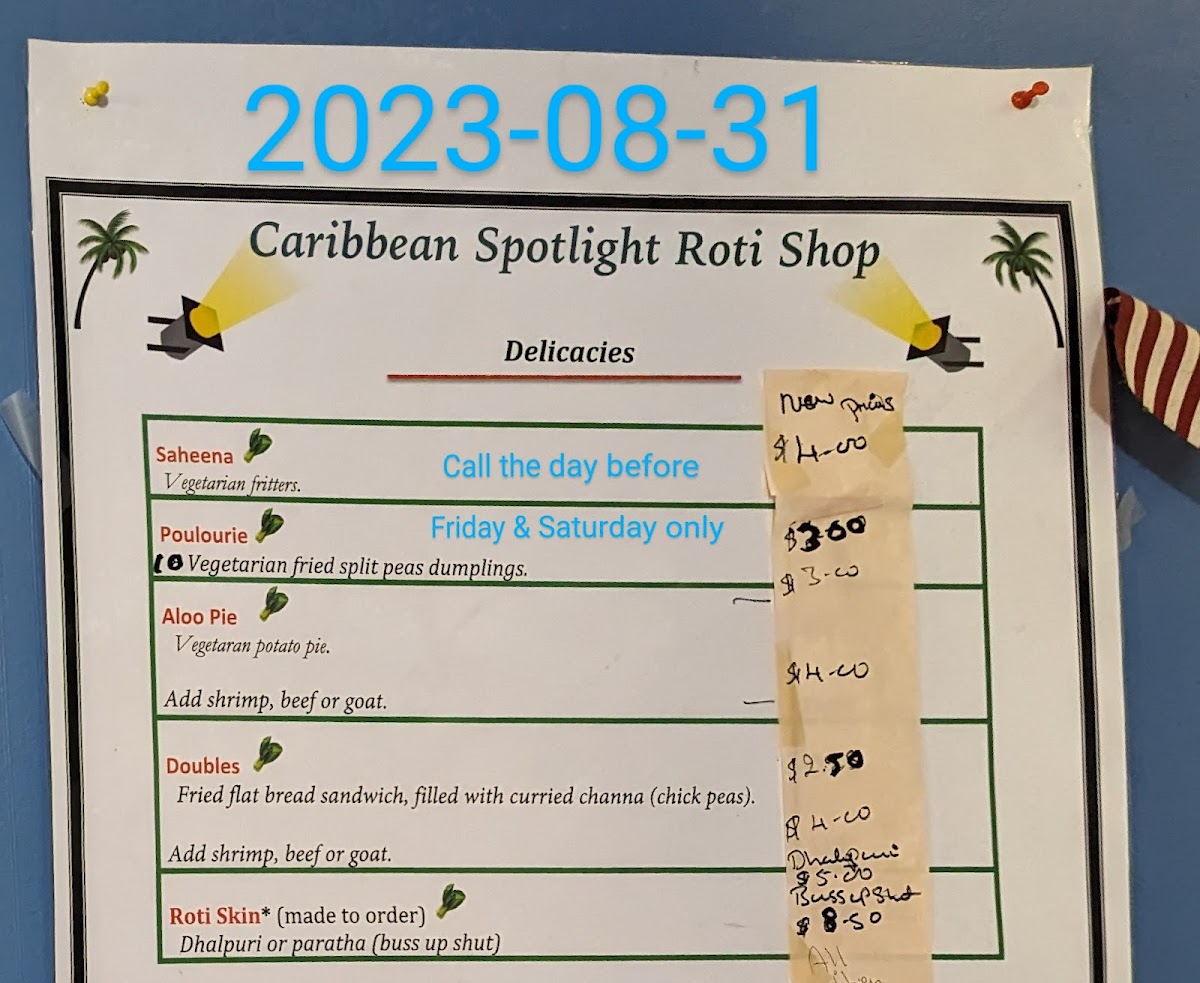 2023-08-31
Caribbean Spotlight Roti Shop
Delicacies
New prices
Saheena
$4-00
Vegetarian fritters.
Call the day before
Poulourie
Friday & Saturday only
$300
10 Vegetarian fried split peas dumplings.
$3-00
Aloo Pie
Vegetaran potato pie.
$4-00
Add shrimp, beef or goat.
Doubles
$2.50
Fried flat bread sandwich, filled with curried channa (chick peas).
$4-00
Add shrimp, beef or goat.
Dhalpuri
$5.00
Buss up Shut
Roti Skin* (made to order)
$8-50
Dhalpuri or paratha (buss up shut)
All